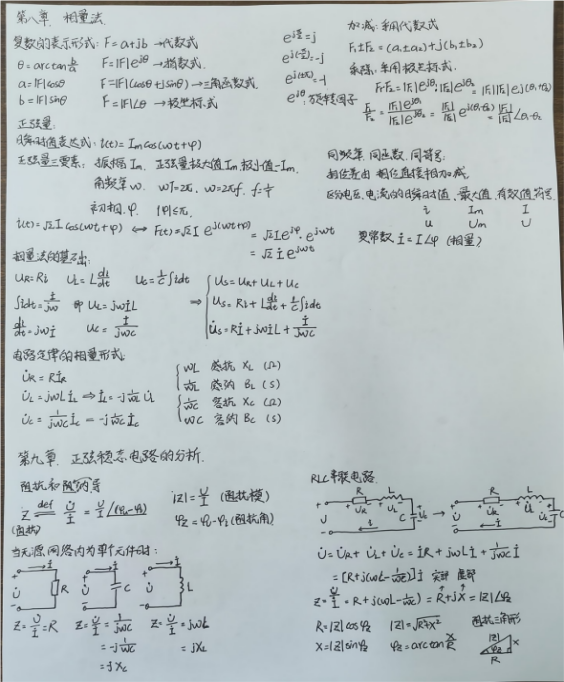 第八章. 相量法.
复数的表示形式: F=a+jb →代数式
θ=arctan b/a F=|F|e^{jθ} →指数式.
a=|F|cosθ F=|F|(cosθ+jsinθ) →三角函数式.
b=|F|sinθ F=|F|∠θ →极坐标式
e^{jπ/2}=j
e^{j(-π/2)}=-j
e^{j(±π)}=-1
e^{jθ}: 旋转因子
加减: 采用代数式
F₁±F₂=(a₁±a₂)+j(b₁±b₂)
乘除: 采用极坐标式.
F₁F₂=|F₁|e^{jθ₁}|F₂|e^{jθ₂}=|F₁||F₂|e^{j(θ₁+θ₂)}
F₁/F₂=|F₁|e^{jθ₁}/|F₂|e^{jθ₂}=|F₁|/|F₂| e^{j(θ₁-θ₂)}=|F₁|/|F₂|∠θ₁-θ₂
正弦量:
瞬时值表达式: i(t)=Im cos(ωt+φ)
正弦量三要素: 振幅 Im. 正弦量极大值Im 极小值-Im.
角频率 ω. ωT=2π, ω=2πf, f=1/T
初相 φ. |φ|≤π.
i(t)=√2 I cos(ωt+φ) ⟷ F(t)=√2 I e^{j(ωt+φ)} =√2 I e^{jφ}·e^{jωt}
=√2 İ e^{jωt}
同频率. 同函数. 同符号.
相位差由相位直接相加减.
区分电压、电流的瞬时值、最大值、有效值符号.
i Im I
u Um U
复常数 İ=I∠φ (相量)
相量法的基础:
U_R=Ri U_L=L di/dt U_C=1/C ∫idt
∫idt=İ/jω 即 U_L=jωİL
di/dt=jωİ U_C=İ/jωC
⇒ { U_S=U_R+U_L+U_C
U_S=Ri+L di/dt+1/C ∫idt
U̇_S=Rİ+jωİL+İ/jωC
电路定律的相量形式:
U̇_R=Rİ_R
U̇_L=jωLİ_L ⇒ İ_L=-j 1/ωL U̇_L
U̇_C=1/jωC İ_C=-j 1/ωC İ_C
{ ωL 感抗 X_L (Ω)
1/ωL 感纳 B_L (S)
{ 1/ωC 容抗 X_C (Ω)
ωC 容纳 B_C (S)
第九章. 正弦稳态电路的分析.
阻抗和导纳
Z def= U̇/İ=U/I∠(φu-φi)
(阻抗)
|Z|=U/I (阻抗模)
φ_Z=φu-φi (阻抗角)
当无源网络内为单个元件时:
+ İ U̇ R -
+ İ U̇ C -
+ İ U̇ L -
Z=U̇/İ=R Z=U̇/İ=1/jωC Z=U̇/İ=jωL
=-j 1/ωC =jX_L
=-jX_C
RLC串联电路.
R L C → R L C
U̇=U̇_R+U̇_L+U̇_C=İR+jωLİ+1/jωC İ
=[R+j(ωL-1/ωC)]İ 实部 虚部
Z=U̇/İ=R+j(ωL-1/ωC)=R+jX=|Z|∠φ_Z
R=|Z|cosφ_Z |Z|=√R²+X² 阻抗三角形
X=|Z|sinφ_Z φ_Z=arctan X/R
|Z| X φ_Z R